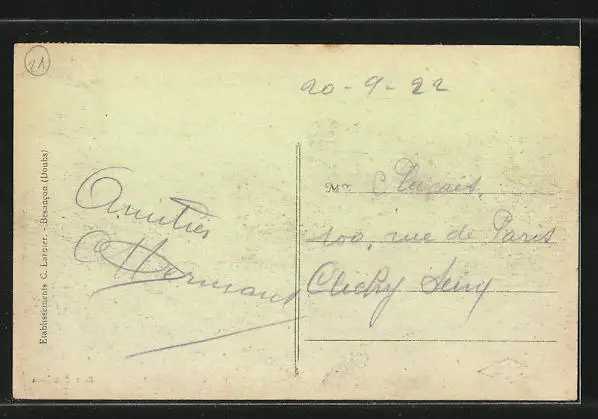 21
20-9-22
Amitiés
C Hermans
Mr C
100, rue de Paris
Clichy Seine
Etablissements C. Lardier. - Besançon (Doubs)